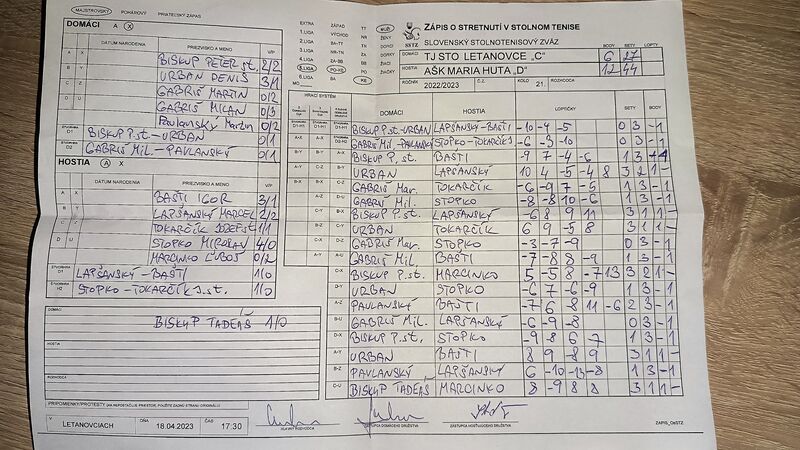 MAJSTROVSKÝ POHÁROVÝ PRIATEĽSKÝ ZÁPAS
DOMÁCI A X
DÁTUM NARODENIA PRIEZVISKO A MENO V/P
A X BISKUP PETER st. 2/2
B Y URBAN DENIŠ 3/1
C Z GABRIŠ MARTIN 0/2
D U GABRIŠ MILAN 0/3
Pavlanský Martin 0/2
D1 BISKUP P.st.-URBAN 0/1
D2 GABRIŠ Mil.-PAVLANSKÝ 0/1
HOSTIA A X
DÁTUM NARODENIA PRIEZVISKO A MENO V/P
A X BAŠTI IGOR 3/1
B Y LAPŠANSKÝ MARCEL 2/2
C Z TOKARČÍK JOZEF st. 1/1
D U STOPKO MIROSLAV 4/0
MARCINKO ĽUBOŠ 0/2
LAPŠANSKÝ-BAŠTI 1/0
H2 STOPKO-TOKARČÍK J.st. 1/0
DOMÁCI
BISKUP TADEÁŠ 1/0
HOSTIA
ROZHODCA
PRIPOMIENKY/PROTESTY
V LETANOVCIACH DŇA 18.04.2023 ČAS 17:30
EXTRA ZÁPAD TT MUŽI
1.LIGA VÝCHOD NR ŽENY
2.LIGA BA-TT TN DORCI
3.LIGA
4.LIGA ZA-BB BB ŽIACI
5.LIGA PO-KE PO ŽIAČKY
MO KE
SSTZ
ZÁPIS O STRETNUTÍ V STOLNOM TENISE
SLOVENSKÝ STOLNOTENISOVÝ ZVÄZ BODY SETY LOPTY
DOMÁCI TJ STO LETANOVCE „C" 6 27
HOSTIA AŠK MARIA HUTA „D" 12 44
ROČNÍK 2022/2023 Č.Z. KOLO 21. ROZHODCA
HRACÍ SYSTÉM
DOMÁCI HOSTIA LOPTIČKY SETY BODY
BISKUP P.st.-URBAN LAPŠANSKÝ-BAŠTI -10 -4 -5 0 3 - 1
GABRIŠ Mil.-PAVLANSKÝ STOPKO-TOKARČÍK J. -6 -3 -10 0 3 - 1
BISKUP P. st. BAŠTI -9 7 -4 -6 1 3 - 1
URBAN LAPŠANSKÝ 10 4 -5 -4 8 3 2 1 -
GABRIŠ Mar. TOKARČÍK -6 -9 7 -5 1 3 - 1
GABRIŠ Mil. STOPKO -8 -8 10 -6 1 3 - 1
BISKUP P.st. LAPŠANSKÝ -6 8 9 11 3 1 1 -
URBAN TOKARČÍK 6 9 -5 8 3 1 1 -
GABRIŠ Mar. STOPKO -3 -7 -9 0 3 - 1
GABRIŠ Mil. BAŠTI -7 -8 8 -9 1 3 - 1
BISKUP P.st. MARCINKO 5 -5 8 -7 13 3 2 1 -
URBAN STOPKO -6 7 -6 -9 1 3 - 1
PAVLANSKÝ BAŠTI -7 6 -8 11 -6 2 3 - 1
GABRIŠ Mil. LAPŠANSKÝ -6 -9 -8 0 3 - 1
BISKUP P. st. STOPKO -9 -8 6 -7 1 3 - 1
URBAN BAŠTI 8 9 -8 9 3 1 1 -
PAVLANSKÝ LAPŠANSKÝ 6 -10 -13 -8 1 3 - 1
BISKUP TADEÁŠ MARCINKO 8 -9 8 8 3 1 1 -
HLAVNÝ ROZHODCA ZÁSTUPCA DOMÁCEHO DRUŽSTVA ZÁSTUPCA HOSŤUJÚCEHO DRUŽSTVA ZAPIS_OsSTZ